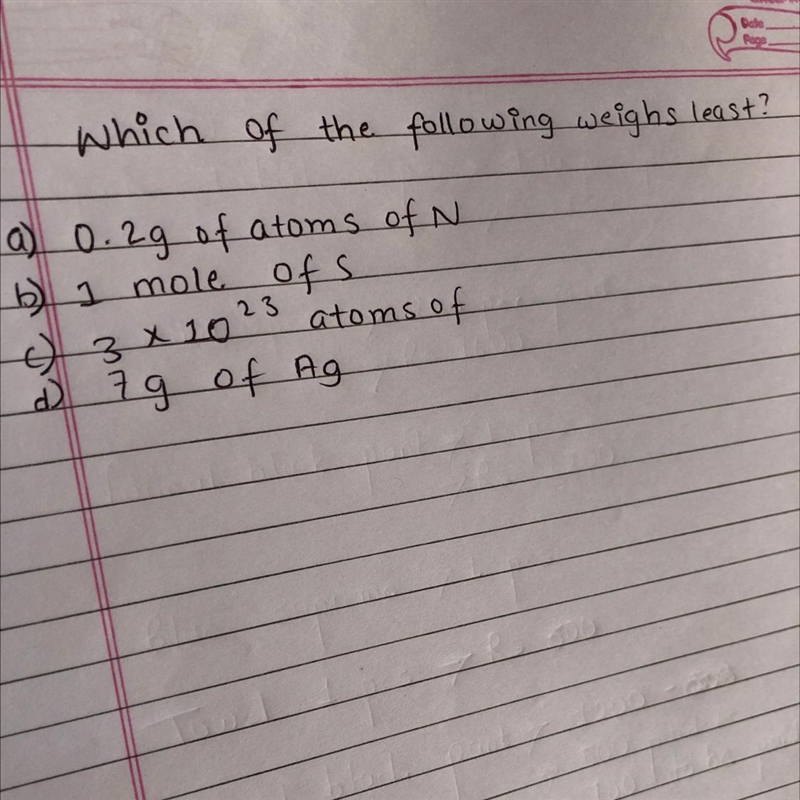 Date
Page
Which of the following weighs least?
a) 0.2g of atoms of N
b) 1 mole of S
c) 3 × 10²³ atoms of
d) 7g of Ag